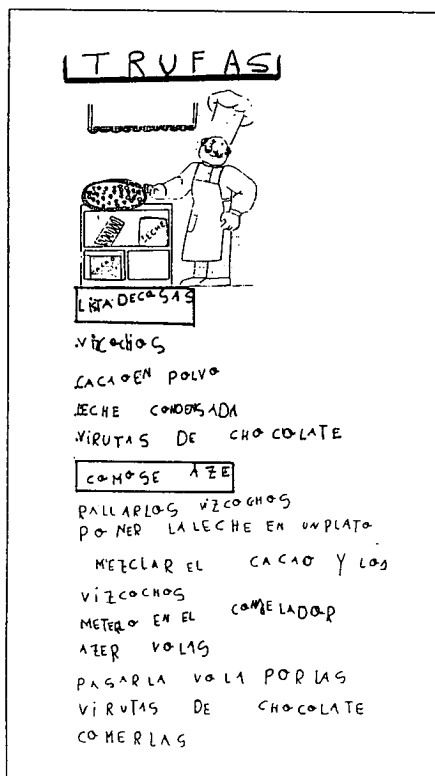 TRUFAS
LECHE
CACAO
LISTA DECOSAS
.VIZCOCHOS
.CACAOEN POLVO
.LECHE CONDENSADA
.VIRUTAS DE CHOCOLATE
COMOSE AZE
RALLARLOS VIZCOCHOS
PONER LALECHE EN UNPLATO
MEZCLAR EL CACAO Y LOS
VIZCOCHOS
METERLO EN EL CONGELADOR
AZER VOLAS
PASARLA VOLA PORLAS
VIRUTAS DE CHOCOLATE
COMERLAS